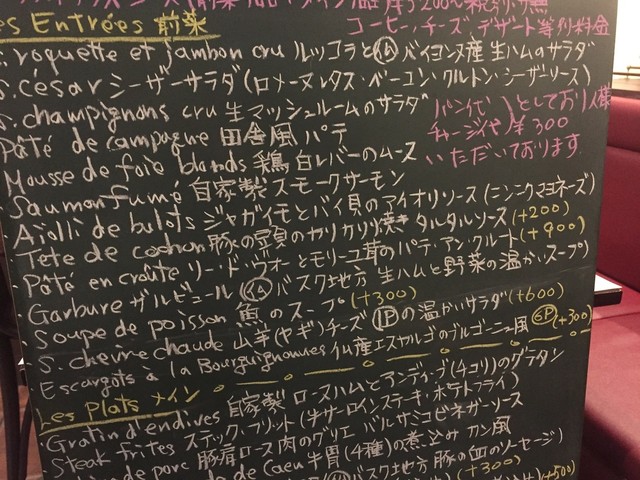 es Entrées 前菜
コーヒー・チーズ・デザート等別料金
S. roquette et jambon cru ルッコラと バイヨンヌ産 生ハムのサラダ
S. césar シーザーサラダ(ロメーヌレタス・ベーコン・クルトン・シーザーソース)
S. champignons cru 生マッシュルームのサラダ
パン代 としてお1人様
チャージ代 ¥300
いただいております.
Pâté de campagne 田舎風 パテ
Mousse de foie blonds 鶏白レバーのムース
Saumon fumé 自家製 スモークサーモン
Aïolli de bulots ジャガイモとバイ貝のアイオリソース(ニンニクマヨネーズ)
Tete de cochon 豚の頭のカリカリ焼き タルタルソース(+200)
Pâté en croûte リー・ド・ヴォーとモリーユ茸のパテ・アン・クルート(+900)
Garbure ガルビュール バスク地方 生ハムと野菜の温かいスープ)
Soupe de poisson 魚のスープ(+300)
S. chèvre chaude 山羊(ヤギ)チーズ 1P の温かいサラダ(+600)
Escargots à la Bourguignonnes 仏産エスカルゴのブルゴーニュ風 6P (+300)
Les Plats メイン
Gratin d'endives 自家製 ロースハムとアンディーブ(チコリ)のグラタン
Steak frites ステック・フリット(牛サーロインステーキ・ポテトフライ)
de porc 豚肩ロース肉のグリエ バルサミコビネガーソース
de Caen 牛胃(4種)の煮込み カン風
バスク地方 豚の血のソーセージ)
(+300)
(+500)